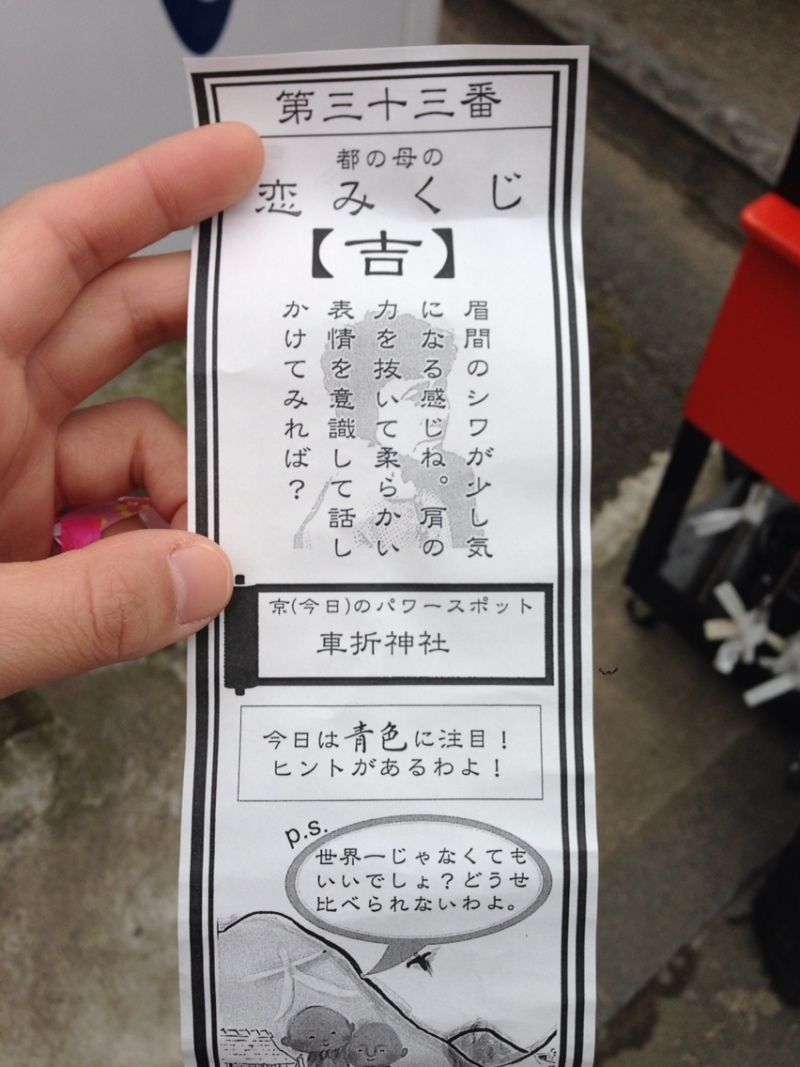 第三十三番
都の母の
恋みくじ
【吉】
眉間のシワが少し気
になる感じね。肩の
力を抜いて柔らかい
表情を意識して話し
かけてみれば？
京(今日)のパワースポット
車折神社
今日は青色に注目！
ヒントがあるわよ！
p.s.
世界一じゃなくても
いいでしょ？どうせ
比べられないわよ。
大